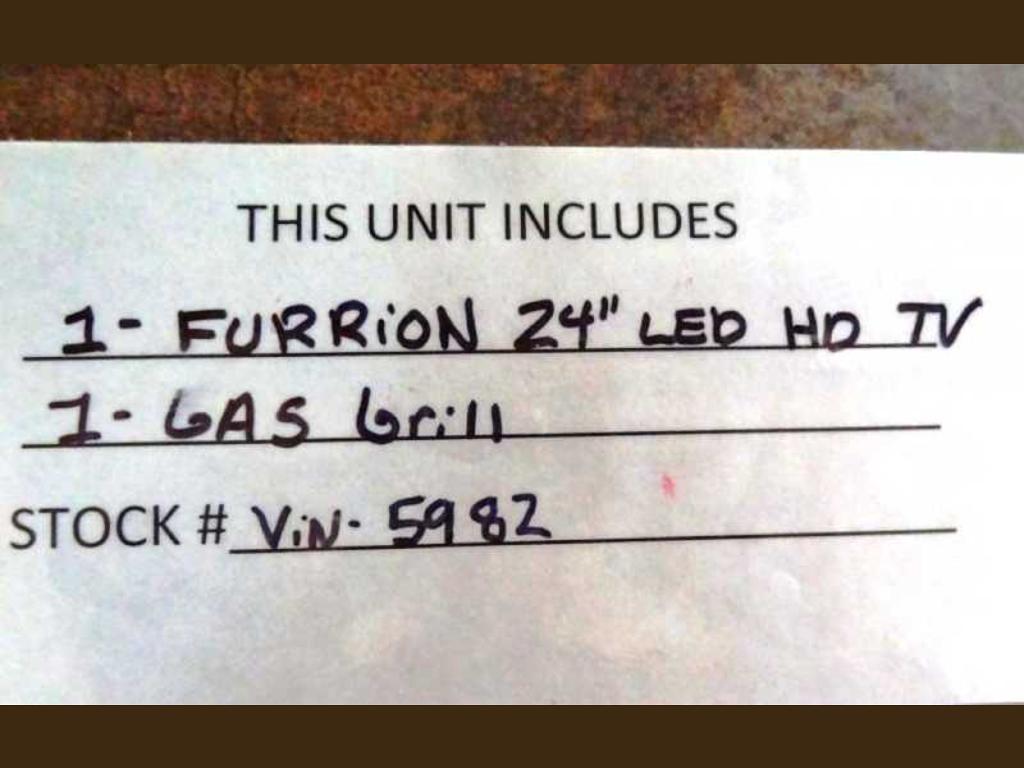 THIS UNIT INCLUDES
1- FURRiON 24" LED HD TV
1- GAS Grill
STOCK # ViN- 5982